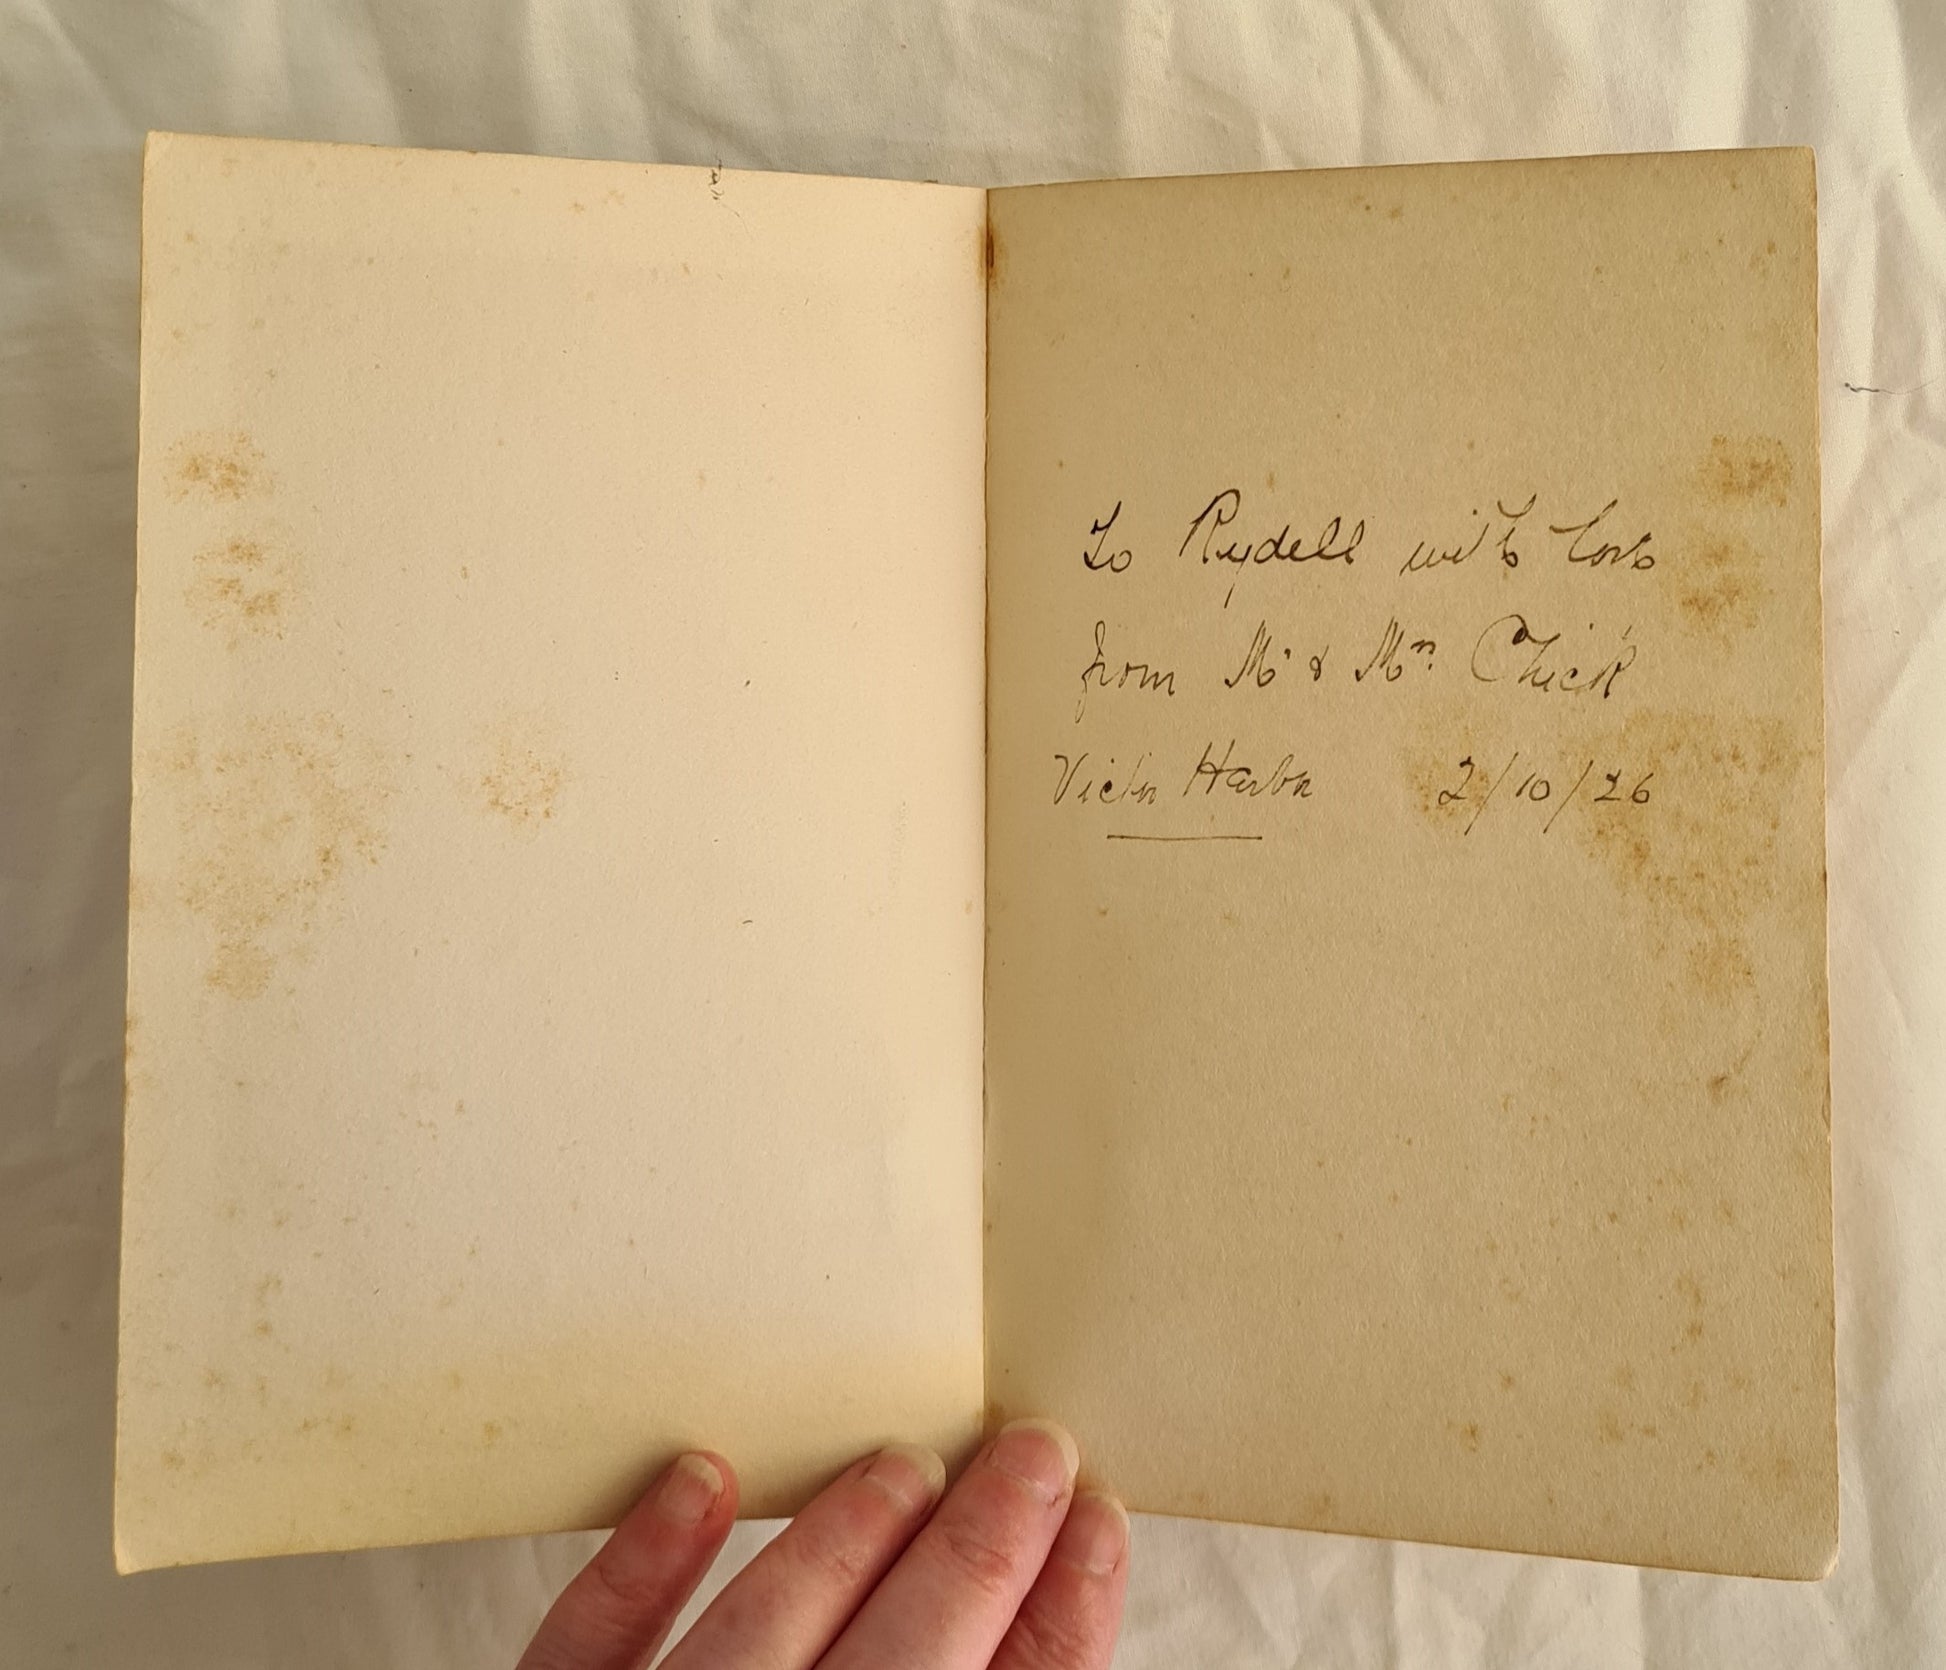 To Rydell with love
from Mr & Mrs. Chick
Victor Harbor 2/10/26